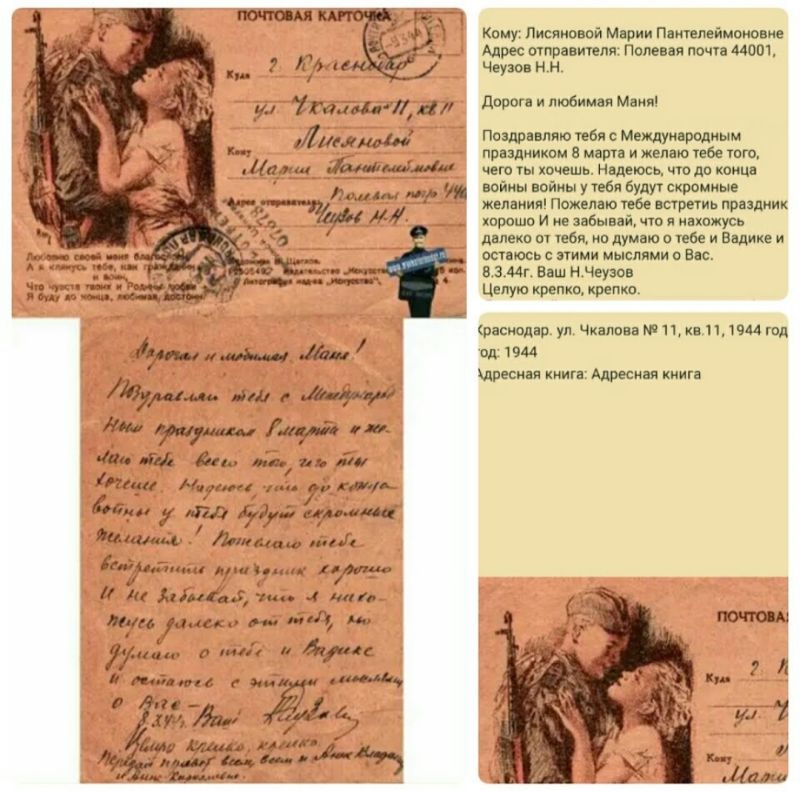 ПОЧТОВАЯ КАРТОЧКА
Куда г. Краснодар
ул Чкалова 11, кв 11
Лисяновой
Кому Марии Пантелеймовне
Адрес отправителя: Полевая почта 440
Чеузов Н.Н.
Любовию своей меня благослови
А я клянусь тебе, как гражданин
и воин,
Что чувств твоих и Родины любви
Я буду до конца, любимая, достоин.
Щеглов.
Издательство „Искусство"
Литография изд-ва „Искусство",
Дорогая и любимая Маня!
Поздравляю тебя с Международ
ным праздником 8 марта и же-
лаю тебе всего того, чего ты
хочешь. Надеюсь, что до конца
войны у тебя будут скромные
желания! Пожелаю тебе
встретить праздник хорошо
И не забывай, что я нахо-
жусь далеко от тебя, но
думаю о тебе и Вадике
и остаюсь с этими мыслями
о Вас-
8.3.44г. Ваш Н.Чеузов
Целую крепко, крепко.
Передай привет всем, всем и
Кому: Лисяновой Марии Пантелеймоновне
Адрес отправителя: Полевая почта 44001,
Чеузов Н.Н.
Дорога и любимая Маня!
Поздравляю тебя с Международным
праздником 8 марта и желаю тебе того,
чего ты хочешь. Надеюсь, что до конца
войны войны у тебя будут скромные
желания! Пожелаю тебе встретиь праздник
хорошо И не забывай, что я нахожусь
далеко от тебя, но думаю о тебе и Вадике и
остаюсь с этими мыслями о Вас.
8.3.44г. Ваш Н.Чеузов
Целую крепко, крепко.
Краснодар. ул. Чкалова № 11, кв.11, 1944 год
год: 1944
Адресная книга: Адресная книга
ПОЧТОВА
Куда г. К
ул Ч
Кому
Мари